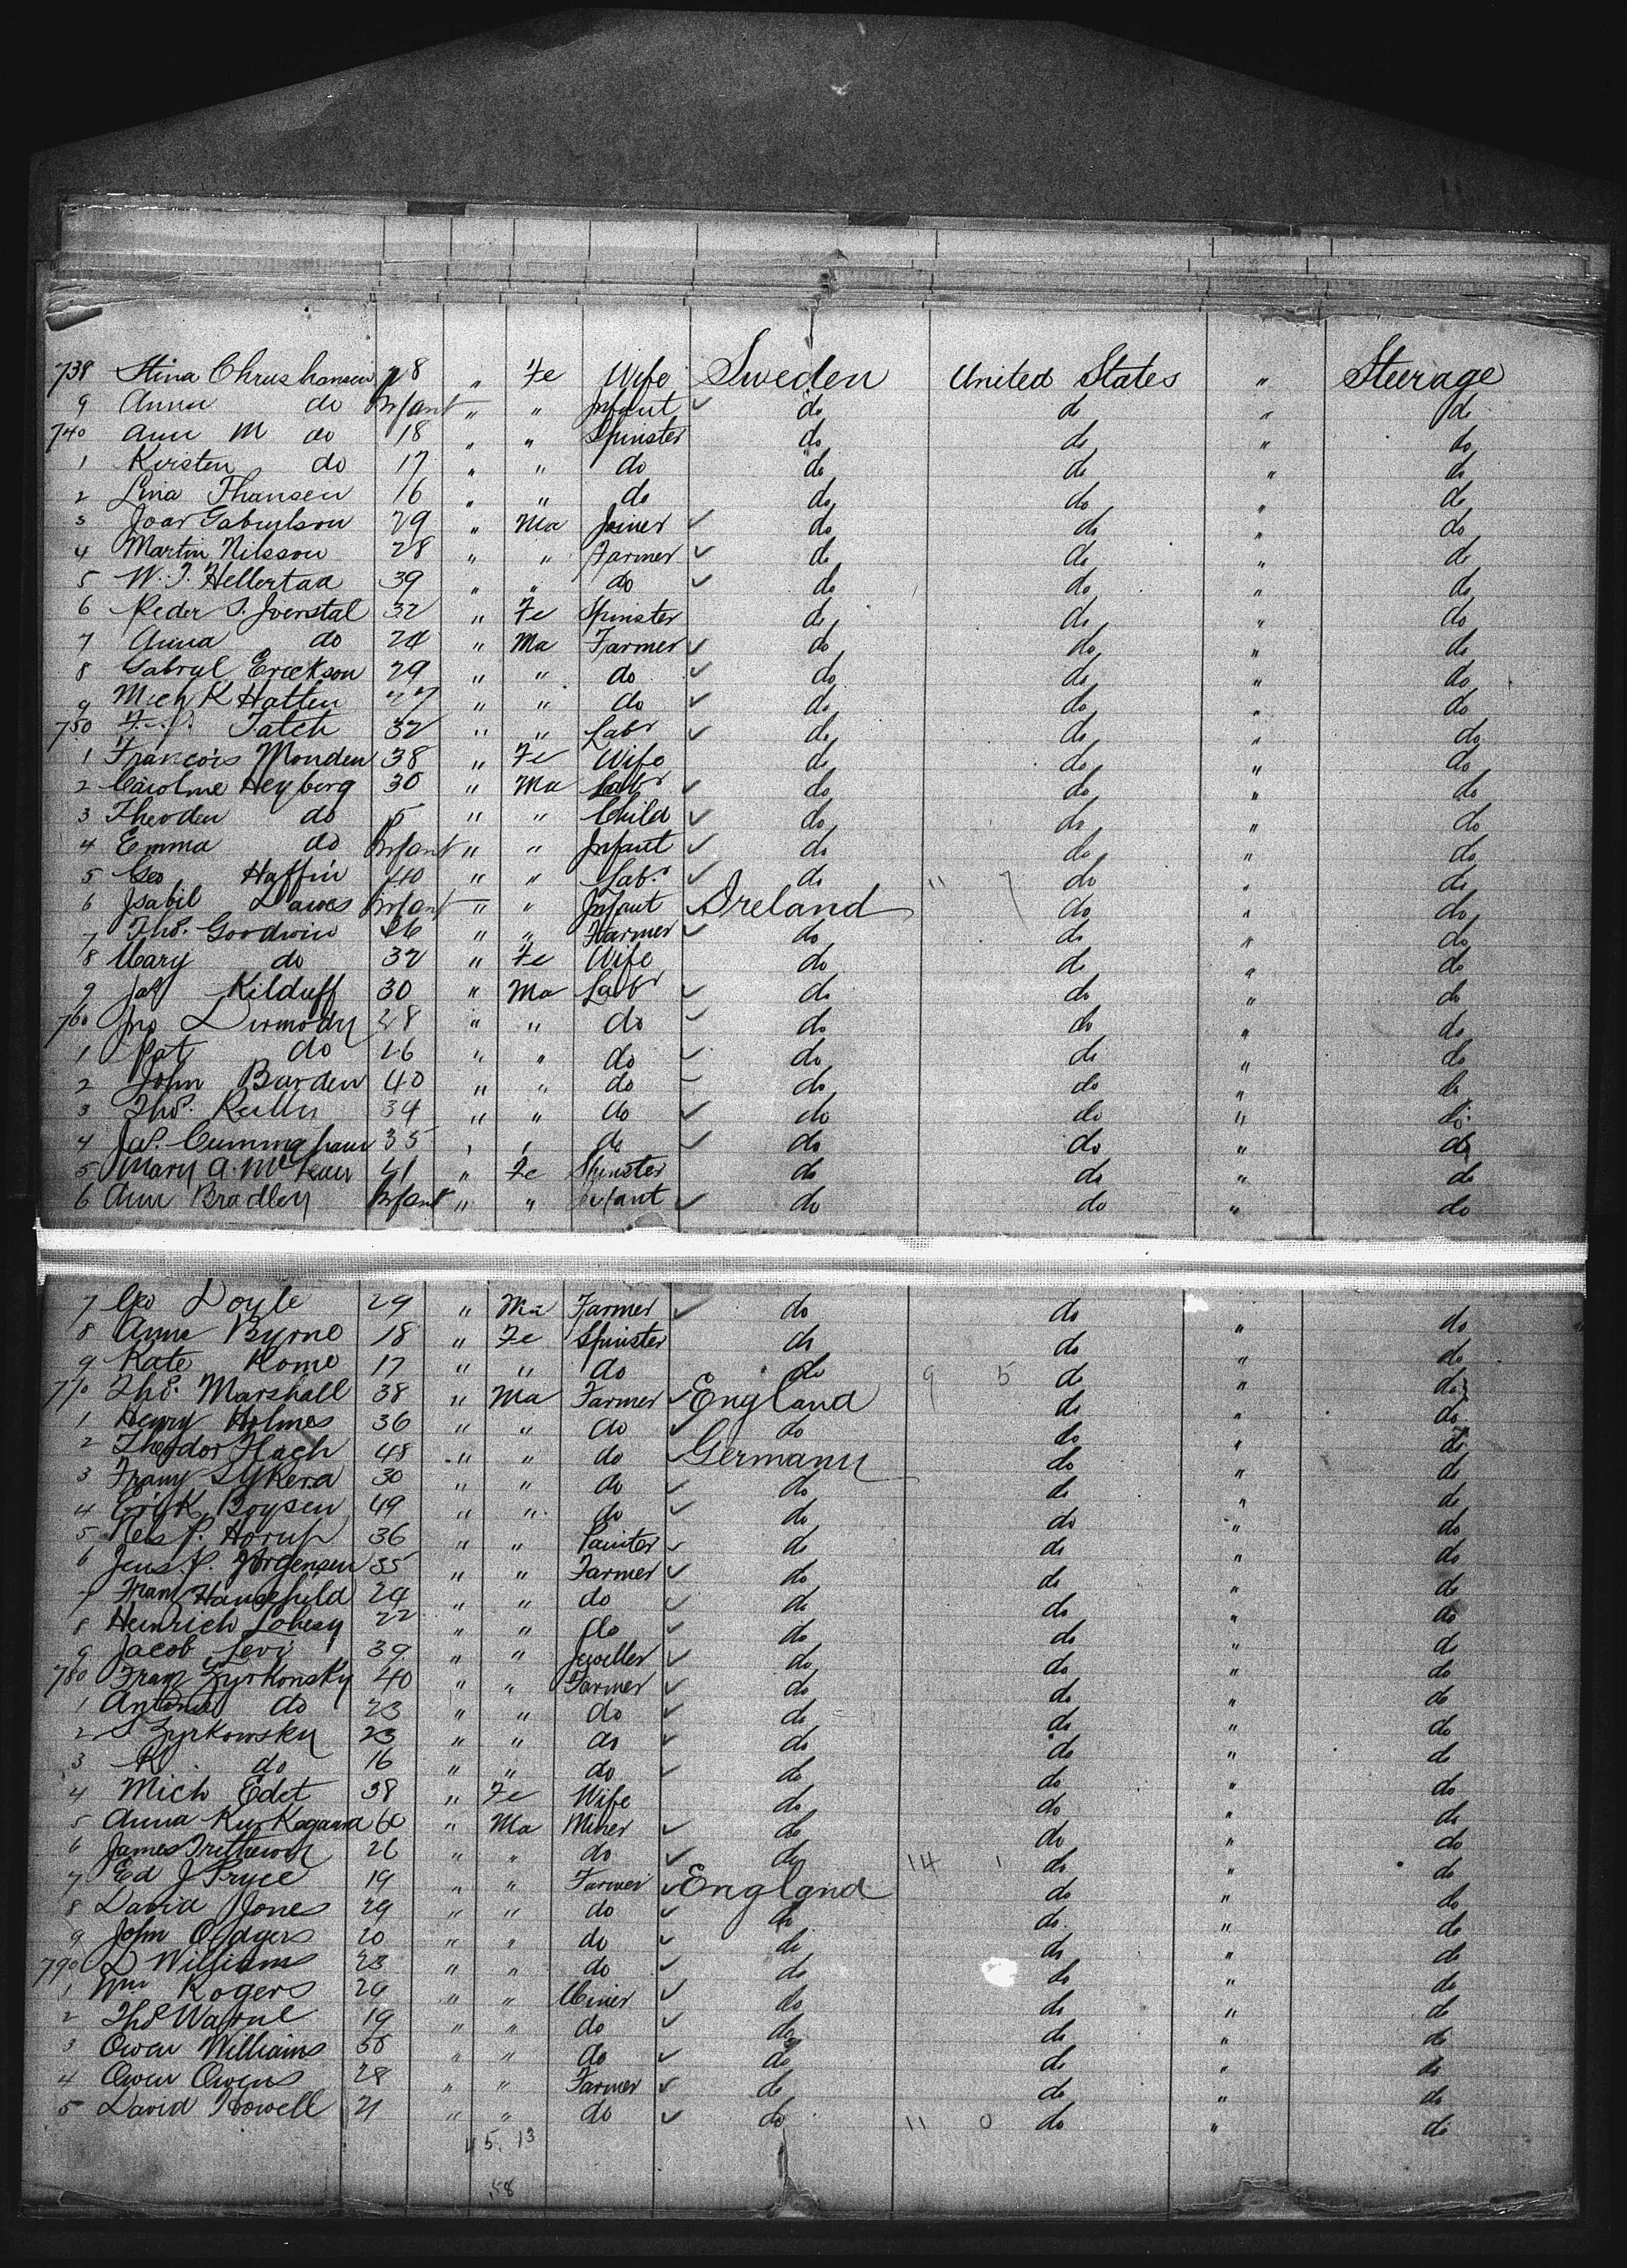 738 Stina Chrushansen 28 " Fe Wife Sweden United States " Steerage
9 Anna do Infant " " Infant ✓ do do " do
740 Ann M do 18 " " Spinster do do " do
1 Kirsten do 17 " " do do do " do
2 Lina Thansen 16 " " do do do " do
3 Joar Gaburlson 29 " Ma Joiner ✓ do do " do
4 Martin Nilsson 28 " " Farmer ✓ do do " do
5 W. T. Hellertaa 39 " " do ✓ do do " do
6 Peder S. Joerstal 32 " Fe Spinster do do " do
7 Anna do 24 " Ma Farmer ✓ do do " do
8 Gabral Erickson 29 " " do ✓ do do " do
9 Mich K Hatten 27 " " do ✓ do do " do
750 Tatch 32 " " Labr ✓ do do " do
1 Francois Monden 38 " Fe Wife do do " do
2 Caroline Heyberg 30 " Ma Labr ✓ do do " do
3 Theoden do 5 " " Child ✓ do do " do
4 Emma do Infant " " Infant ✓ do do " do
5 Geo Haffin 40 " " Labr ✓ do 11 7 do " do
6 Isabil Dawes Infant " " Infant ✓ Ireland do " do
7 Thos. Goodwin 26 " " Farmer ✓ do do " do
8 Mary do 32 " Fe Wife do do " do
9 Jas Kilduff 30 " Ma Labr ✓ do do " do
760 Jno Dermody 28 " " do ✓ do do " do
1 Pat do 26 " " do ✓ do do " do
2 John Barden 40 " " do ✓ do do " do
3 Thos. Reilly 34 " " do ✓ do do " do
4 Jas. Cunningham 35 " " do ✓ do do " do
5 Mary A. McKeau 21 " Fe Spinster do do " do
6 Ann Bradley Infant " " Infant ✓ do do " do
7 Geo Doyle 29 " Ma Farmer ✓ do do " do
8 Anne Byrne 18 " Fe Spinster do do " do
9 Kate Kome 17 " " do do 9 5 do " do
770 Thos. Marshall 38 " Ma Farmer ✓ England do " do
1 Henry Holmes 36 " " do ✓ do do " do
2 Theodor Flach 48 " " do ✓ Germany do " do
3 Franz Sykera 30 " " do ✓ do do " do
4 Erik Boysen 49 " " do ✓ do do " do
5 Nels P. Horup 36 " " Painter ✓ do do " do
6 Jens P. Jorgensen 35 " " Farmer ✓ do do " do
7 Franz Hausehild 24 " " do ✓ do do " do
8 Heinrich Lohesy 22 " " do ✓ do do " do
9 Jacob Levi 39 " " Jeweller ✓ do do " do
780 Franz Zyrkonsky 40 " " Farmer ✓ do do " do
1 Antonia do 23 " " do ✓ do do " do
2 S. Zyrkowsky 23 " " do ✓ do do " do
3 K. do 16 " " do ✓ do do " do
4 Mich Edet 38 " Fe Wife do do " do
5 Anna Kurkagawa 60 " Ma Miner ✓ do do " do
6 James Trethewey 26 " " do ✓ do 14 1 do " do
7 Ed J Pryce 19 " " Farmer ✓ England do " do
8 David Jones 29 " " do ✓ do do " do
9 John Odgers 20 " " do ✓ do do " do
790 D Williams 23 " " do ✓ do do " do
1 Wm Rogers 29 " " Miner ✓ do do " do
2 Thos Wayne 19 " " do ✓ do do " do
3 Owen Williams 38 " " do ✓ do do " do
4 Owen Owens 28 " " Farmer ✓ do do " do
5 David Howell 21 " " do ✓ do 11 0 do " do
45. 13
58